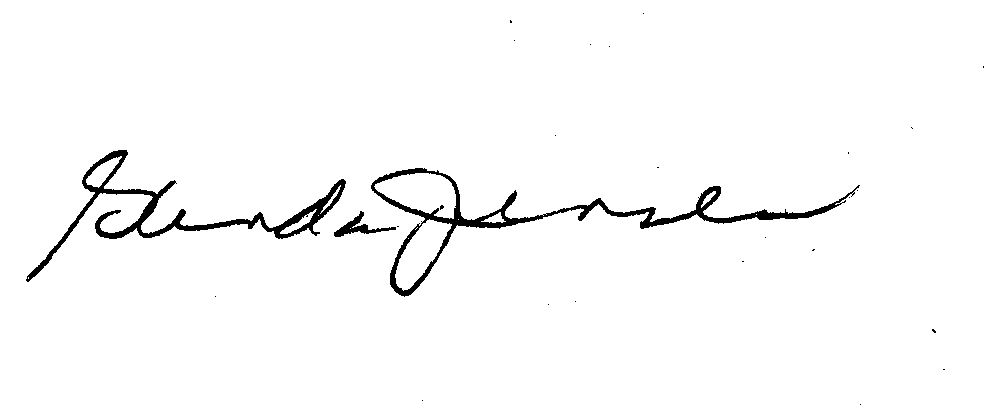 Glenda Jensen